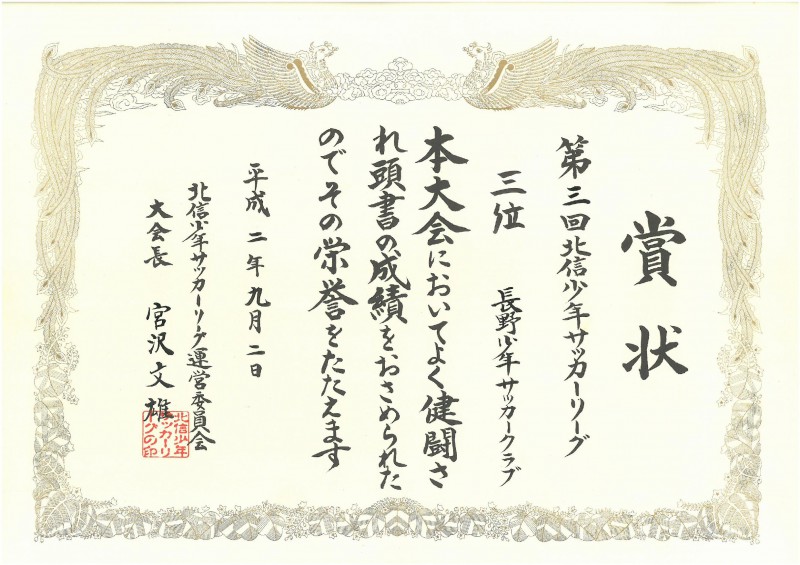 賞状
第三回北信少年サッカーリーグ
三位
長野少年サッカークラブ
本大会においてよく健闘さ
れ頭書の成績をおさめられた
のでその栄誉をたたえます
平成二年九月二日
北信少年サッカーリーグ運営委員会
大会長 宮沢文雄
北信少年
サッカーリ
ーグの印